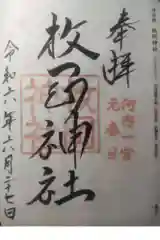 奉拝
河内一宮
元春日
枚岡神社
令和六年六月二十七日